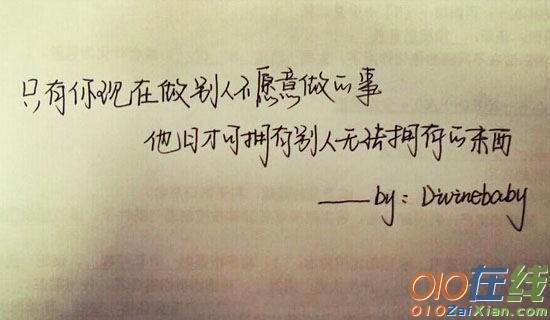 只有你现在做别人不愿意做的事
他日才可拥有别人无法拥有的东西
——by：Divinebaby
010在线
010ZaiXian.com